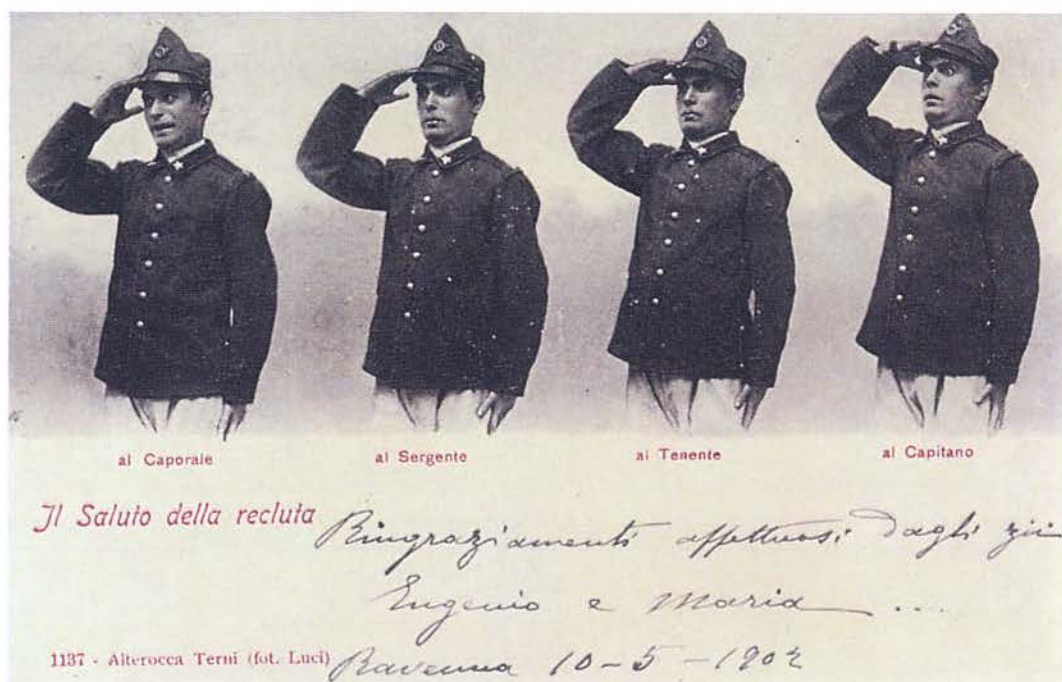 al Caporale
al Sergente
al Tenente
al Capitano
Il Saluto della recluta
Ringraziamenti affettuosi dagli zii
Eugenio e Maria ...
1137 - Alterocca Terni (fot. Luci)
Ravenna 10-5-1902